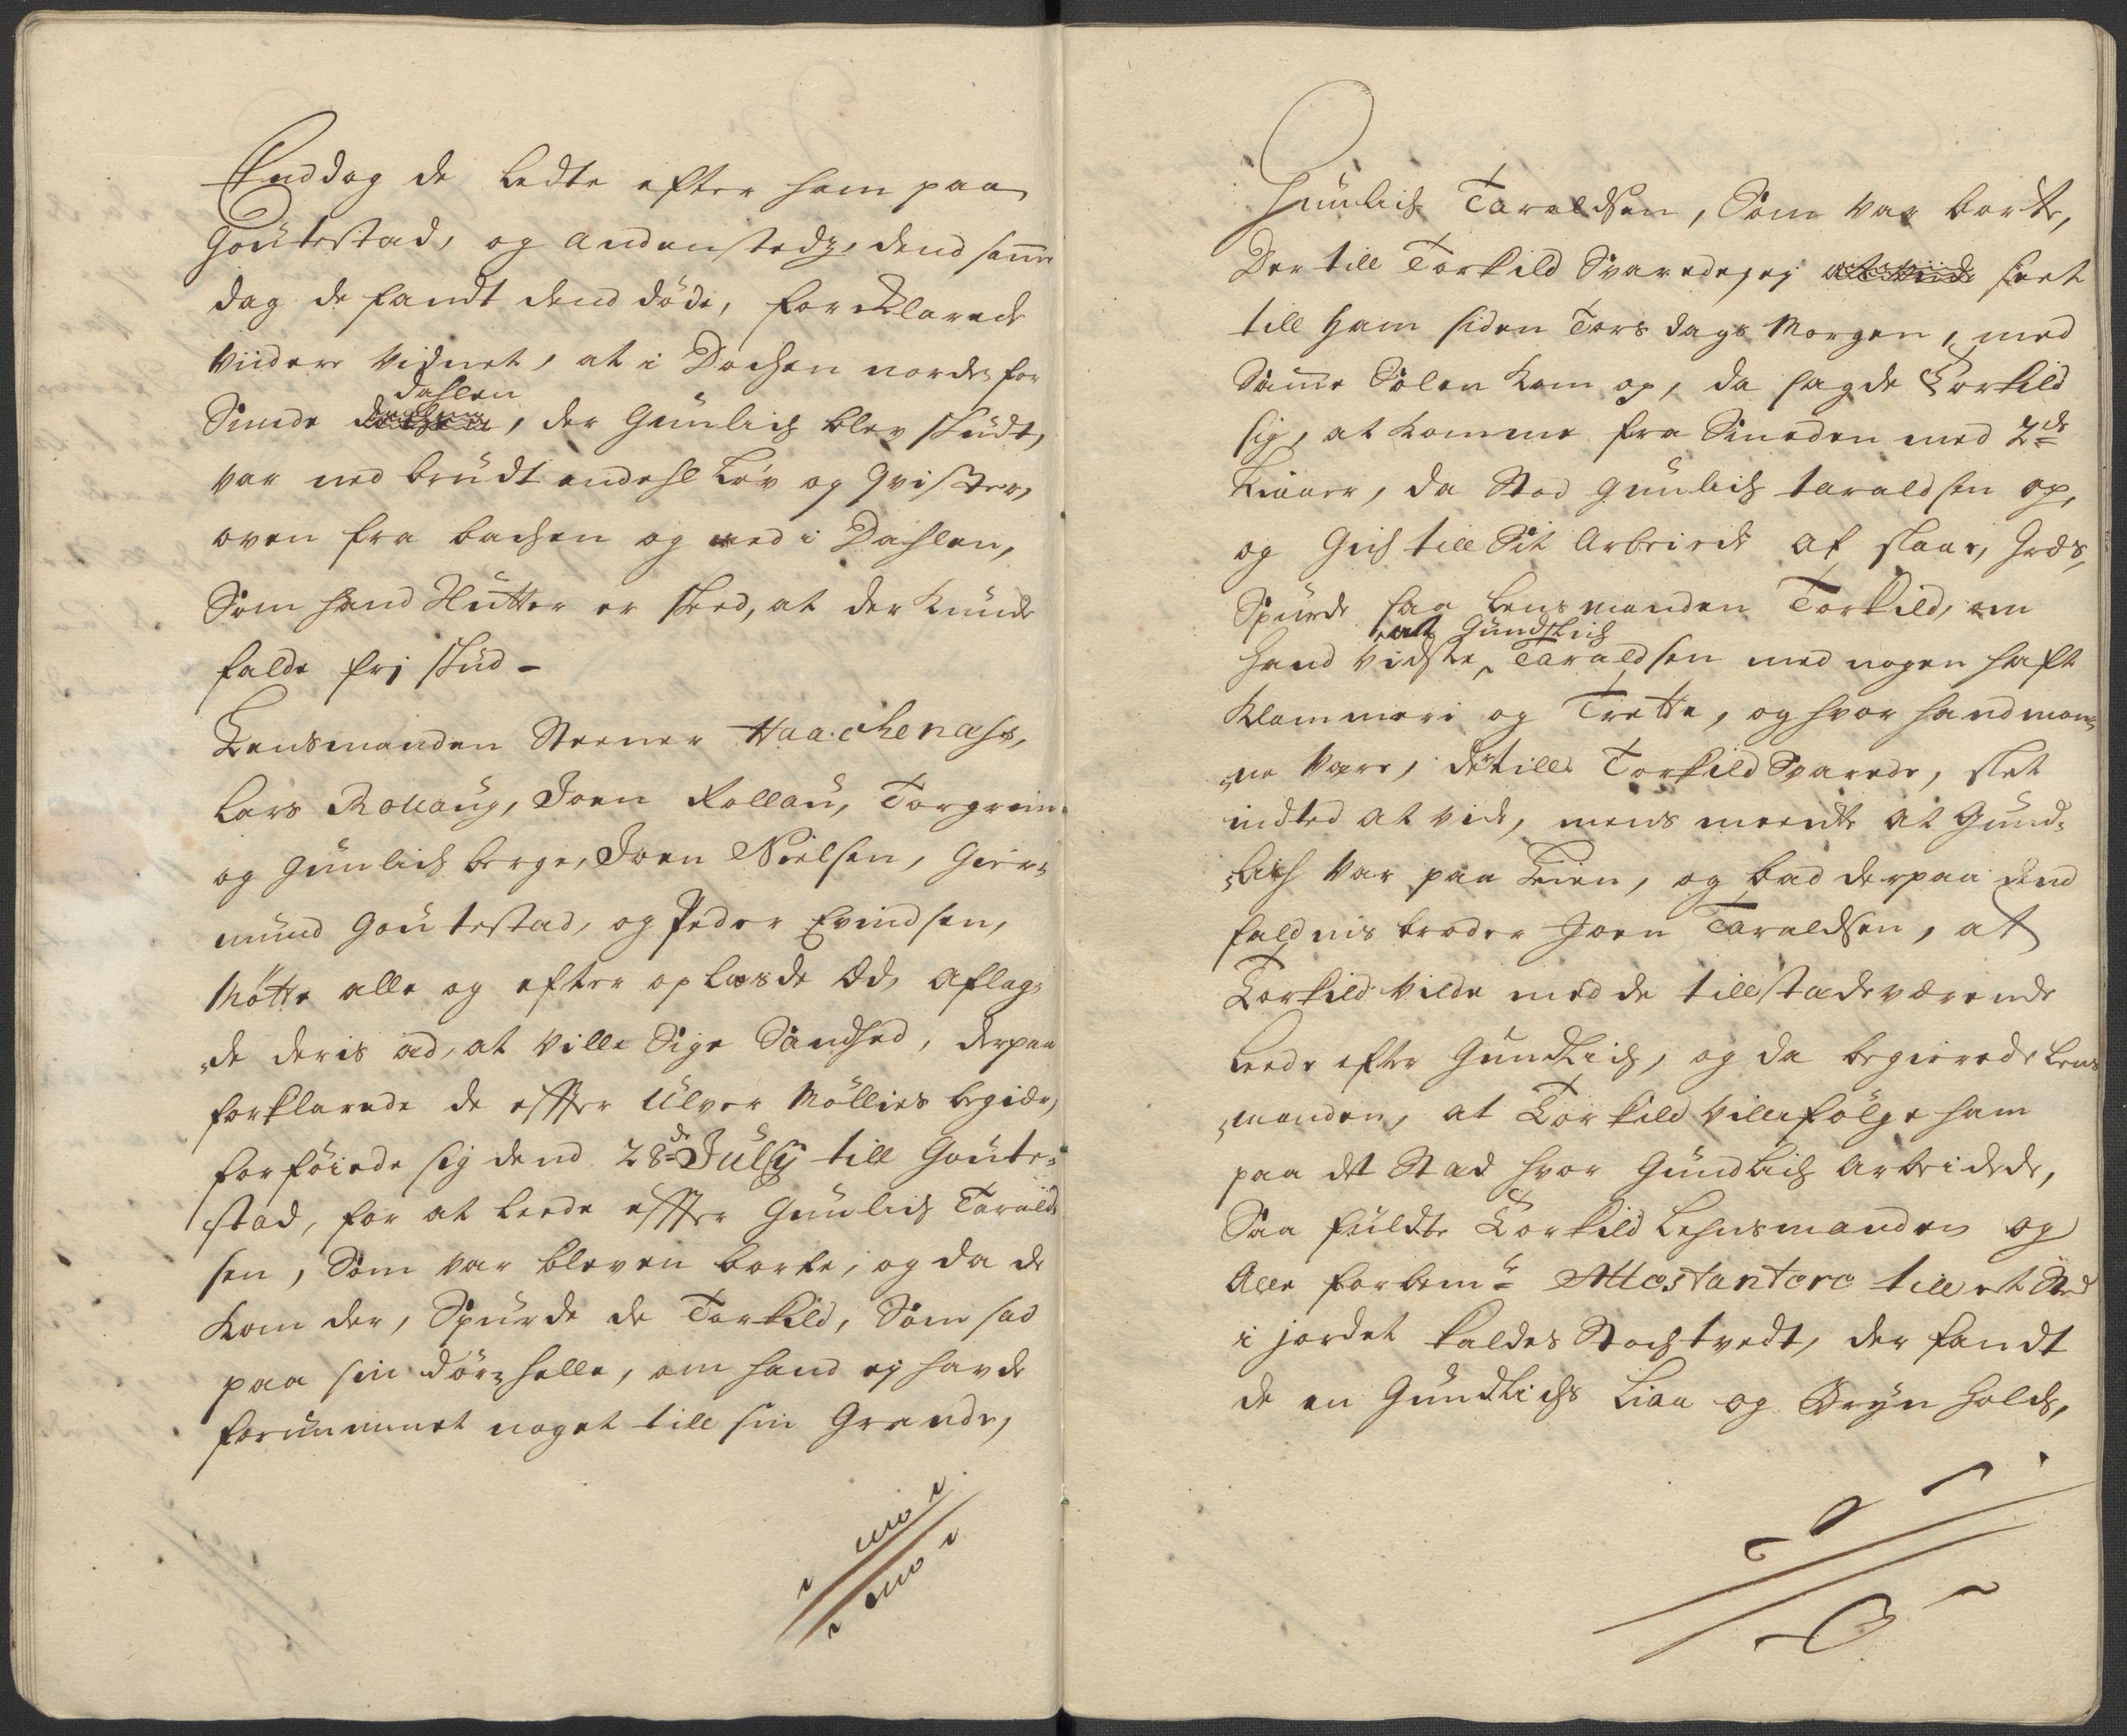 Enddog de ledte efter ham paa
Goutestad, og andenstedz, dend same
dag de fandt dend döde, forcklarede
viidere vidnet, at i Dochen norden for
Smede dochen dahlen, der Gunlich blev skudt,
var ned brudt endehl löv og qvister,
oven fra bachen og ned i Dahlen,
Som hand Slutter er skeed, at der kunde
falde fri skud -
Lensmanden Steener Haachenæss,
Lars Rollaug, Joen Rollau, Torgrim
og Gunlich berge, Joen Nielsen, Gier¬
mund Goutestad, og Peder Evindsen,
Mötte alle og efter oplæsde Æd, aflag¬
de deris æd, at ville Sige Sandhed, derpaa
forklarede de effter Ulver Möllies begiær,
forföiede sig dend 28de July till Goute¬
stad, for at leede effter Gunlich Tarald¬
sen, Som var bleven borte, og da de
kom der, Spurde de Torkild, Som sad
paa sin dör-helle, om hand ej havde
fornummet noget till sin Grande,
Gunlich Taraldsen, Som var borte,
Der till Torkild Svarede, ej at viide seet
till ham siden Torsdags Morgen, med
Same Solen kom op, da sagde Torkild
sig, at komme fra Smeden med 2de
Liaaer, da Stod Gunlich taraldsen op,
og Gich till Sit Arbeide af slaae, Græs,
Spurde saa lensmanden Torkild, om
hand vidste at Gundlich Taraldsen med nogen haft
klammeri og Trette, og hvor hand mon¬
ne være, dertill Torkild Svarede, slet
indted at vide, mens meente at Gund¬
lich var paa Leien, og bad derpaa dend
faldnis broder Joen Taraldsen, at
Torkild vilde med de tillstædeværende
leede efter Gundlich, og da begierede lens
manden, at Torkild ville fölge ham
paa det Stæd hvor Gundlich Arbeidede,
Saa fuldte Torkild Lehnsmanden og
Alle forbemte Attestantere till et Stæd
i jordet kaldes Stochtvedt, der fandt
de en Gundlichs Liaa og Bryn holch,